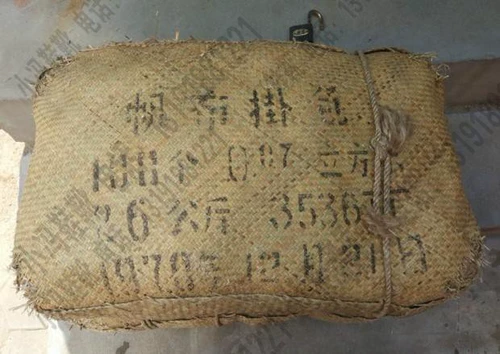 帆布掛包
100个 0.07 立方
26公斤 3536厂
1979年 12月21日